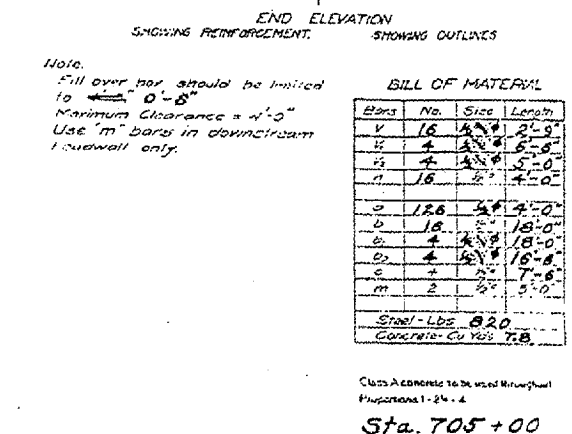 END ELEVATION
SHOWING REINFORCEMENT. SHOWING OUTLINES
Note.
Fill over box should be limited
to 0'-6"
Maximum Clearance = 4'-0"
Use "m" bars in downstream
headwall only.
BILL OF MATERIAL
Bars No. Size Length
v 16 2'-9"
v₁ 4 6'-6"
v₂ 4 5'-0"
n 16 4'-0"
a 126 4'-0"
b 18 18'-0"
b₁ 4 18'-0"
b₂ 4 16'-8"
c 4 7'-6"
m 2 5'-0"
Steel-Lbs 820
Concrete-Cu Yds 7.8
Class A concrete to be used throughout
Proportions 1-2½-4
Sta. 705+00